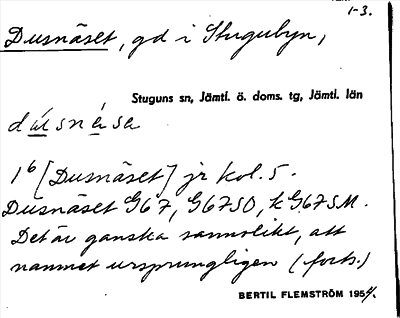 1-3.
Dusnäset, gd i Stugubyn,
Stuguns sn, Jämtl. ö. doms. tg, Jämtl. län
dúsnésa
1⁶ [Dusnäset] jr kol. 5.
Dusnäset G67, G67SO, kG67SM.
Det är ganska sannolikt, att
namnet ursprungligen (forts.)
BERTIL FLEMSTRÖM 1954.